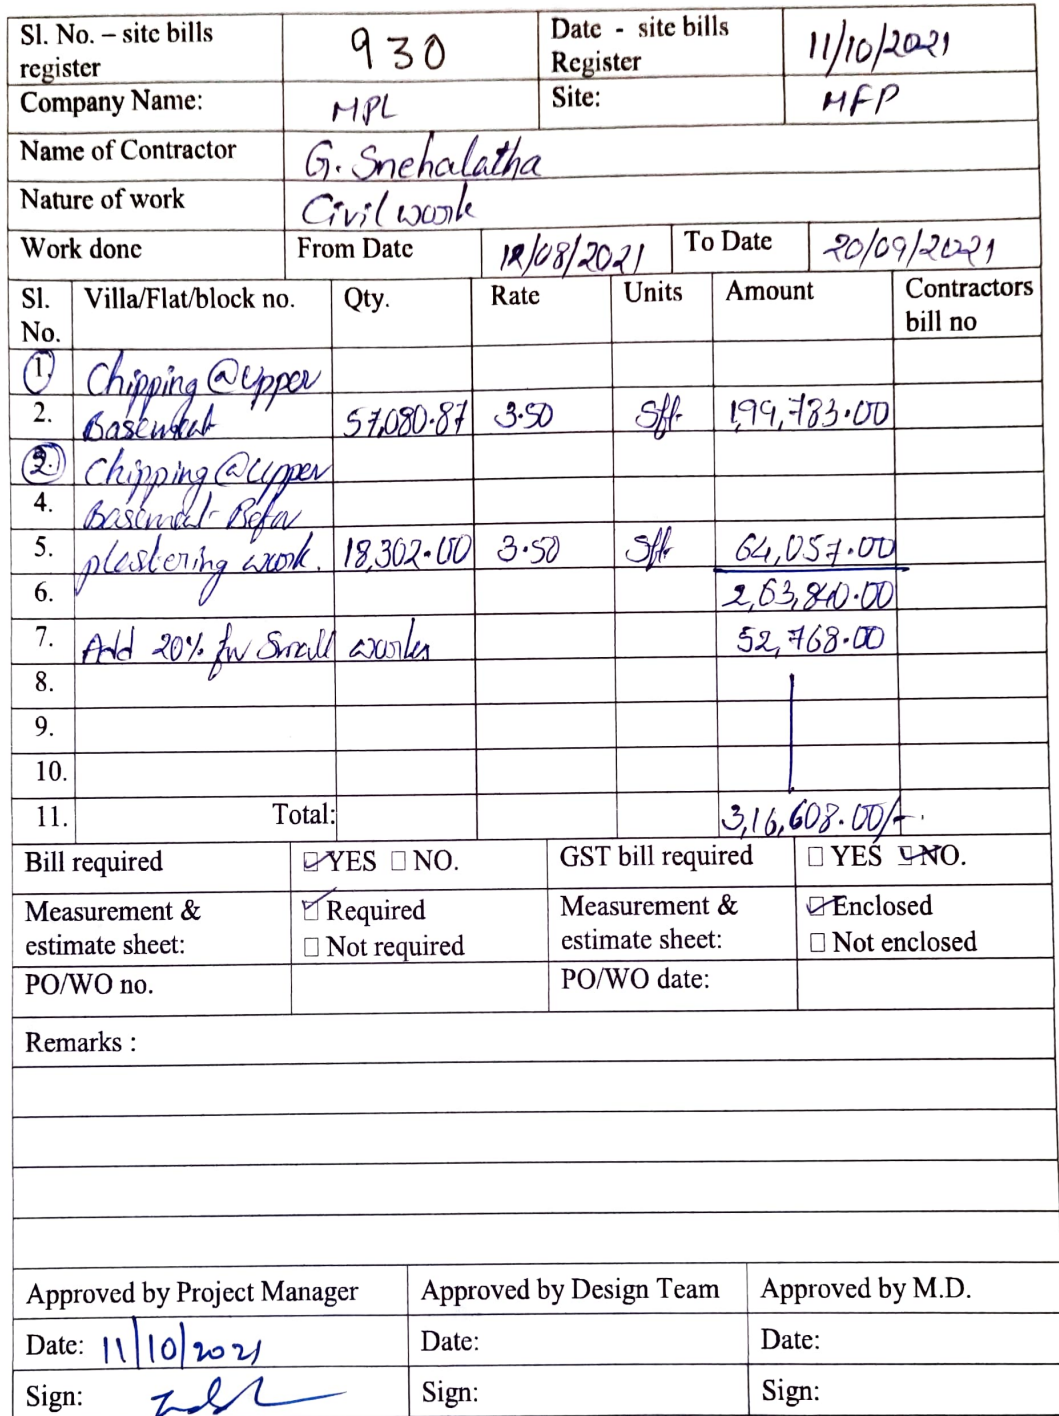 Sl. No. – site bills register 930 Date - site bills Register 11/10/2021
Company Name: MPL Site: MFP
Name of Contractor G. Snehalatha
Nature of work Civil work
Work done From Date 12/08/2021 To Date 20/09/2021
Sl. No. Villa/Flat/block no. Qty. Rate Units Amount Contractors bill no
1. Chipping @ Upper
2. Basement 57,080.87 3.50 Sft. 1,99,783.00
2. Chipping @ Upper
4. Basement - Befor
5. plastering work. 18,302.00 3.50 Sft. 64,057.00
6. 2,63,840.00
7. Add 20% for Small works 52,768.00
8.
9.
10.
11. Total: 3,16,608.00/-.
Bill required ☑ YES □ NO. GST bill required □ YES ☑ NO.
Measurement & estimate sheet: ☑ Required Measurement & estimate sheet: ☑ Enclosed
□ Not required □ Not enclosed
PO/WO no. PO/WO date:
Remarks :
Approved by Project Manager Approved by Design Team Approved by M.D.
Date: 11/10/2021 Date: Date:
Sign: Sign: Sign: